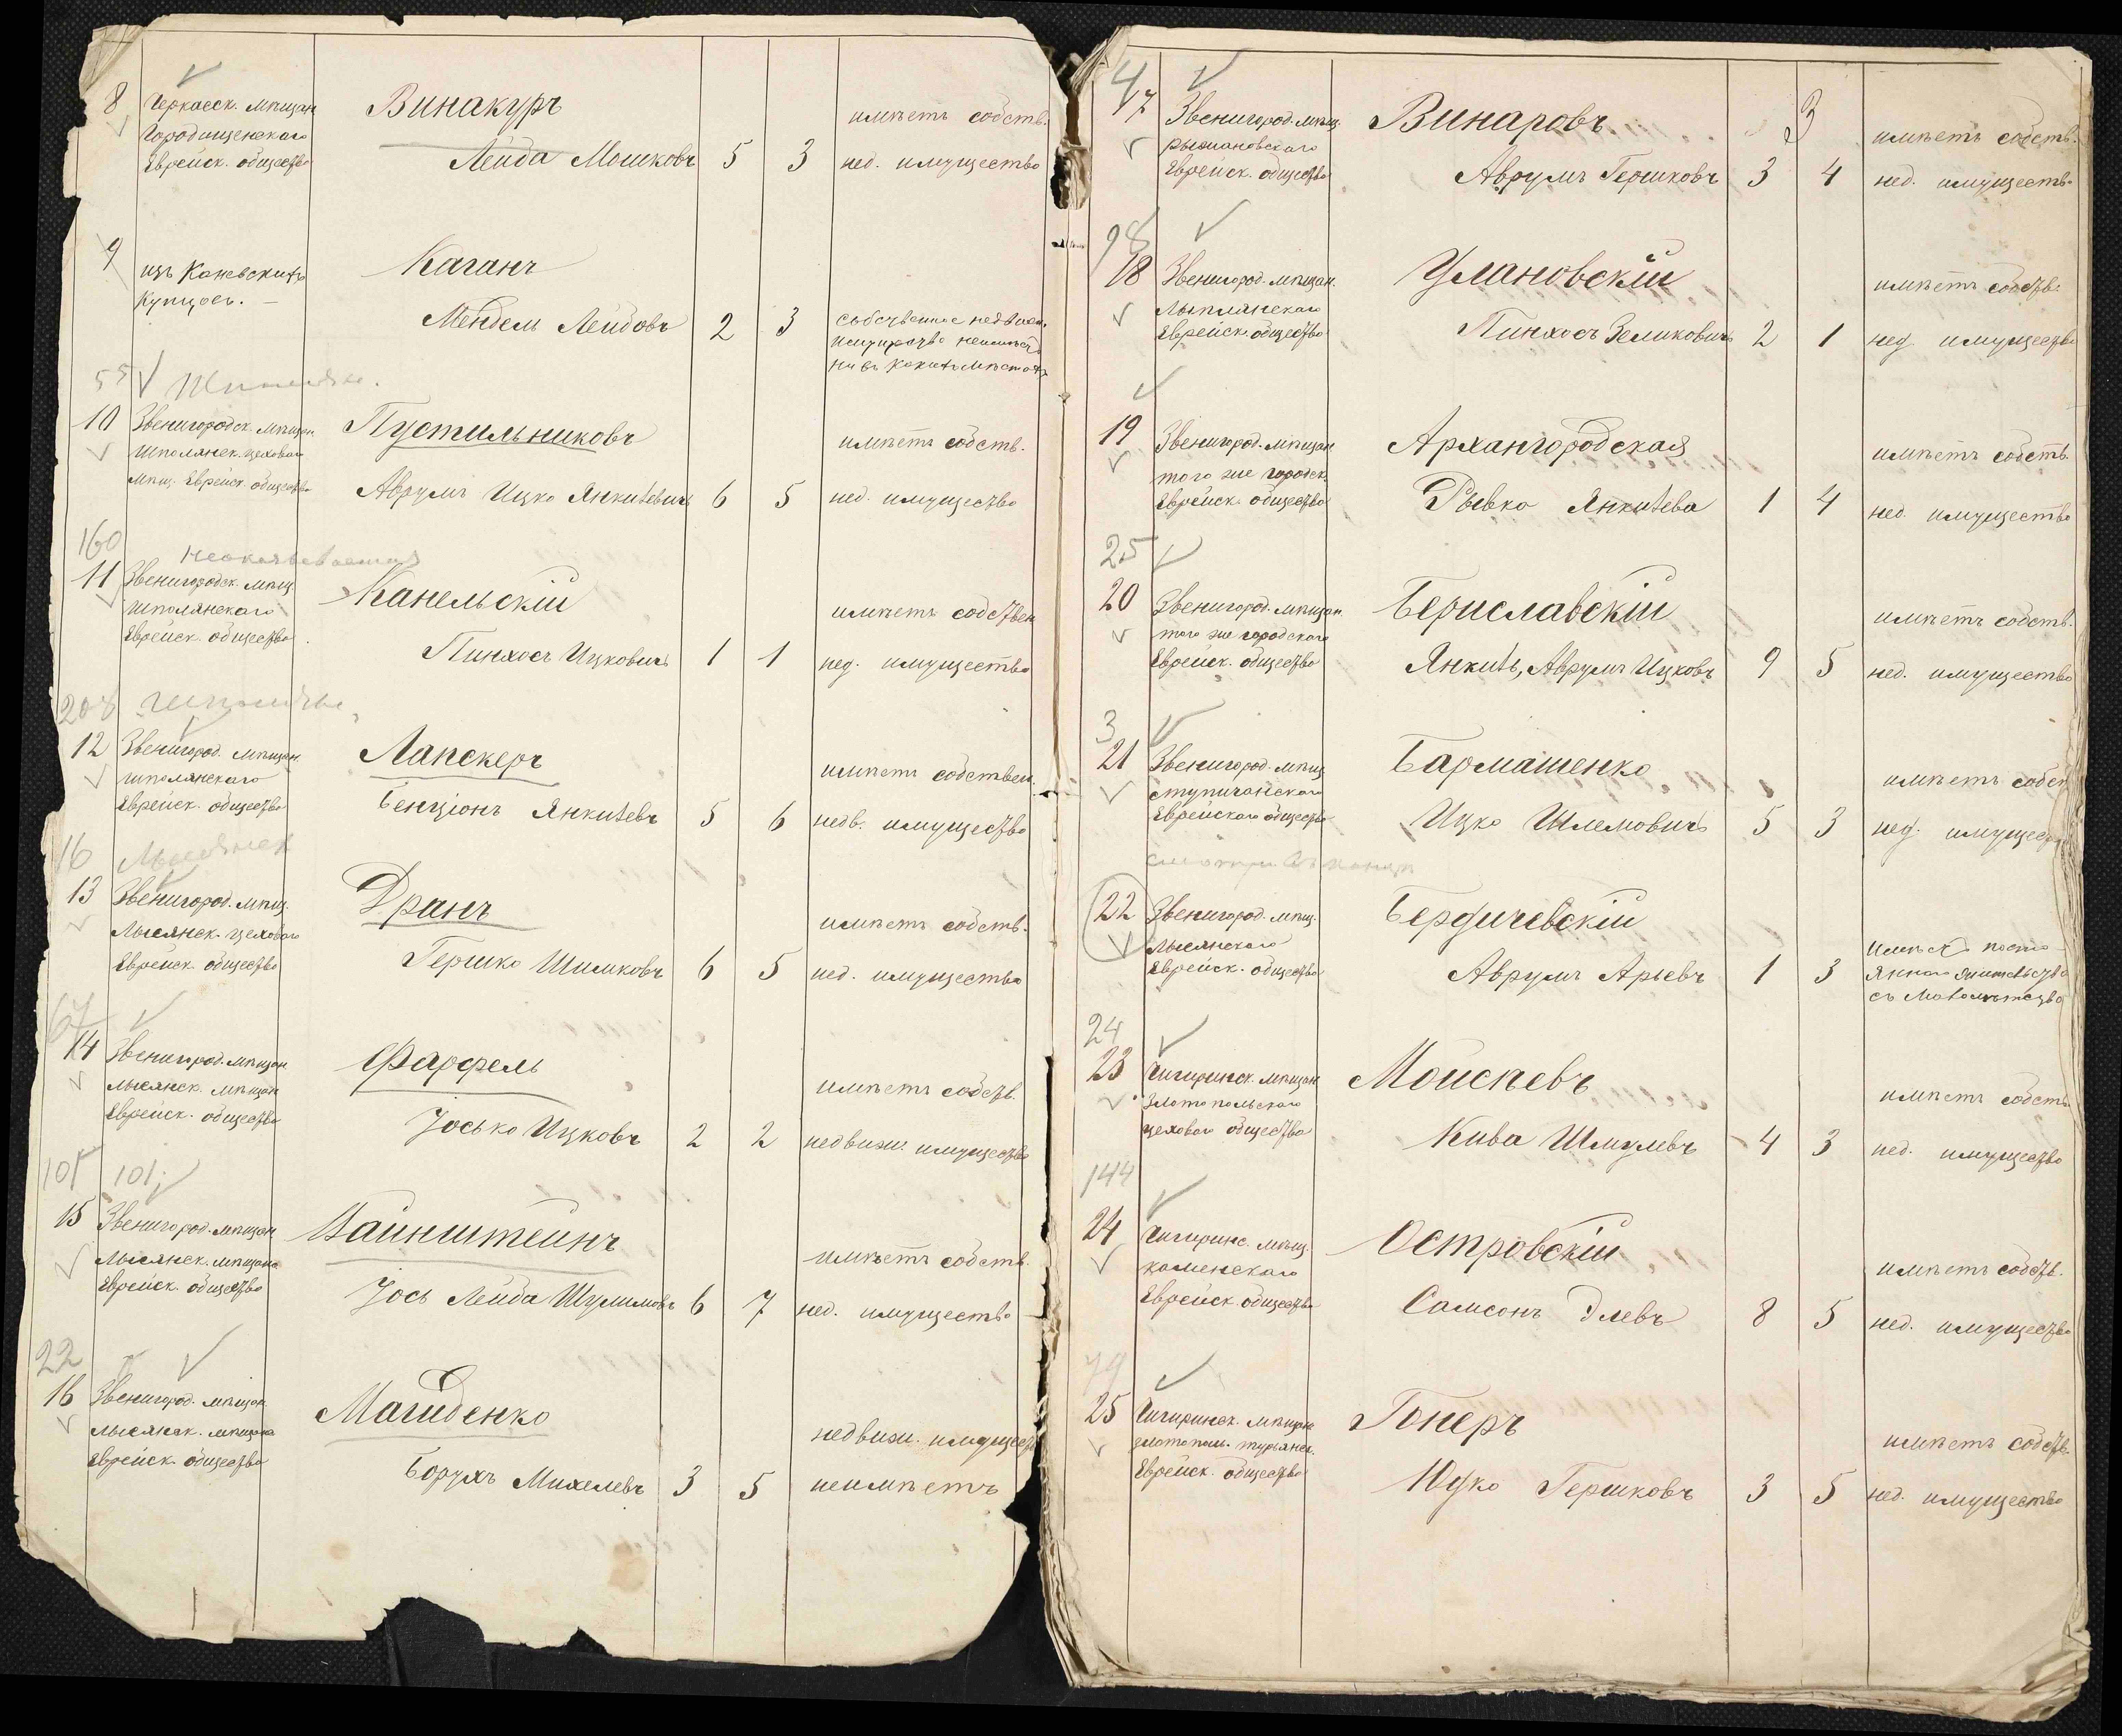 8 Черкасск. мѣщан. Винакуръ имѣетъ собств.
Городищенскаго
Еврейск. общества Лейба Мошковъ 5 3 нед. имущество
9 изъ Каневскихъ Каганъ
Купцовъ. —
Мендель Лейбовъ 2 3 собственное недвиж.
имущество неимѣетъ
ни въ какихъ мѣстахъ
55
10 Звенигородск. мѣщан. Пустильниковъ имѣетъ собств.
Шполянск. цеховаго
мѣщ. Еврейск. общества Аврумъ Ицко Янкелевичъ 6 5 нед. имущество
160
11 Звенигородск. мѣщ. Канельскій имѣетъ собствен
шполянскаго
Еврейск. общества Пинхосъ Ицковичъ 1 1 нед. имущество
208
12 Звенигород. мѣщан. Лапскеръ имѣетъ собствен.
шполянскаго
Еврейск. общества Бенціонъ Янкелевъ 5 6 недв. имущество
16 Лысянск
13 Звенигород. мѣщ. Дранъ имѣетъ собств.
Лысянск. цеховаго
Еврейск. общества Гершко Шимковъ 6 5 нед. имущество
67
14 Звенигород. мѣщан Фарфель имѣетъ собств.
лысянск. мѣщан
Еврейск. общества Іосько Ицковъ 2 2 недвиж. имущество
101 101
15 Звенигород. мѣщан Вайнштейнъ имѣетъ собств.
Лысянск. мѣщан
Еврейск. общество Іось Лейба Шулимовъ 6 7 нед. имущество
22
16 Звенигород. мѣщан Магиденко недвиж. имущест
лысянск. мѣщан
Еврейск. общества Борухъ Михелевъ 3 5 неимѣетъ
4 3
17 Звенигород. мѣщ. Винаровъ имѣетъ собств.
рыжановскаго
Еврейск. общества Аврумъ Гершковъ 3 4 нед. имущество
98
18 Звенигород. мѣщан. Улановскій имѣетъ собств.
Еврейск. общества Пинхосъ Зеликовичъ 2 1 нед. имущество
19 Звенигород. мѣщан Архангородская имѣетъ собств.
того же городск.
Еврейск. общества Рывка Янкелева 1 4 нед. имущество
25
20 Звенигород. мѣщан. Бериславскій имѣетъ собств.
того же городскаго
Еврейск. общества Янкель, Аврумъ Ицковъ 9 5 нед. имущество
3
21 Звенигород. мѣщ. Бармашенко имѣетъ собст
Еврейскаго общества Ицко Шлемовичъ 5 3 нед. имущест
смотри въ концѣ
22 Звенигород. мѣщ. Бердичевскій
Лысянскаго
Еврейск. общества Аврумъ Арьевъ 1 3 имѣетъ посто-
яннаго жительства
съ
24
23 Чигиринск. мѣщан Моисѣевъ имѣетъ собств.
Златопольскаго
цеховаго общества Кива Шмулевъ 4 3 нед. имущество
144
24 Чигиринс. мѣщ. Островскій имѣетъ собств.
каменскаго
Еврейск. общества Самсонъ Элевъ 8 5 нед. имущество
79
25 Чигиринск. мѣщан Гонеръ имѣетъ собств.
златополь. турьянск.
Еврейск. общества Юдко Гершковъ 3 5 нед. имущество